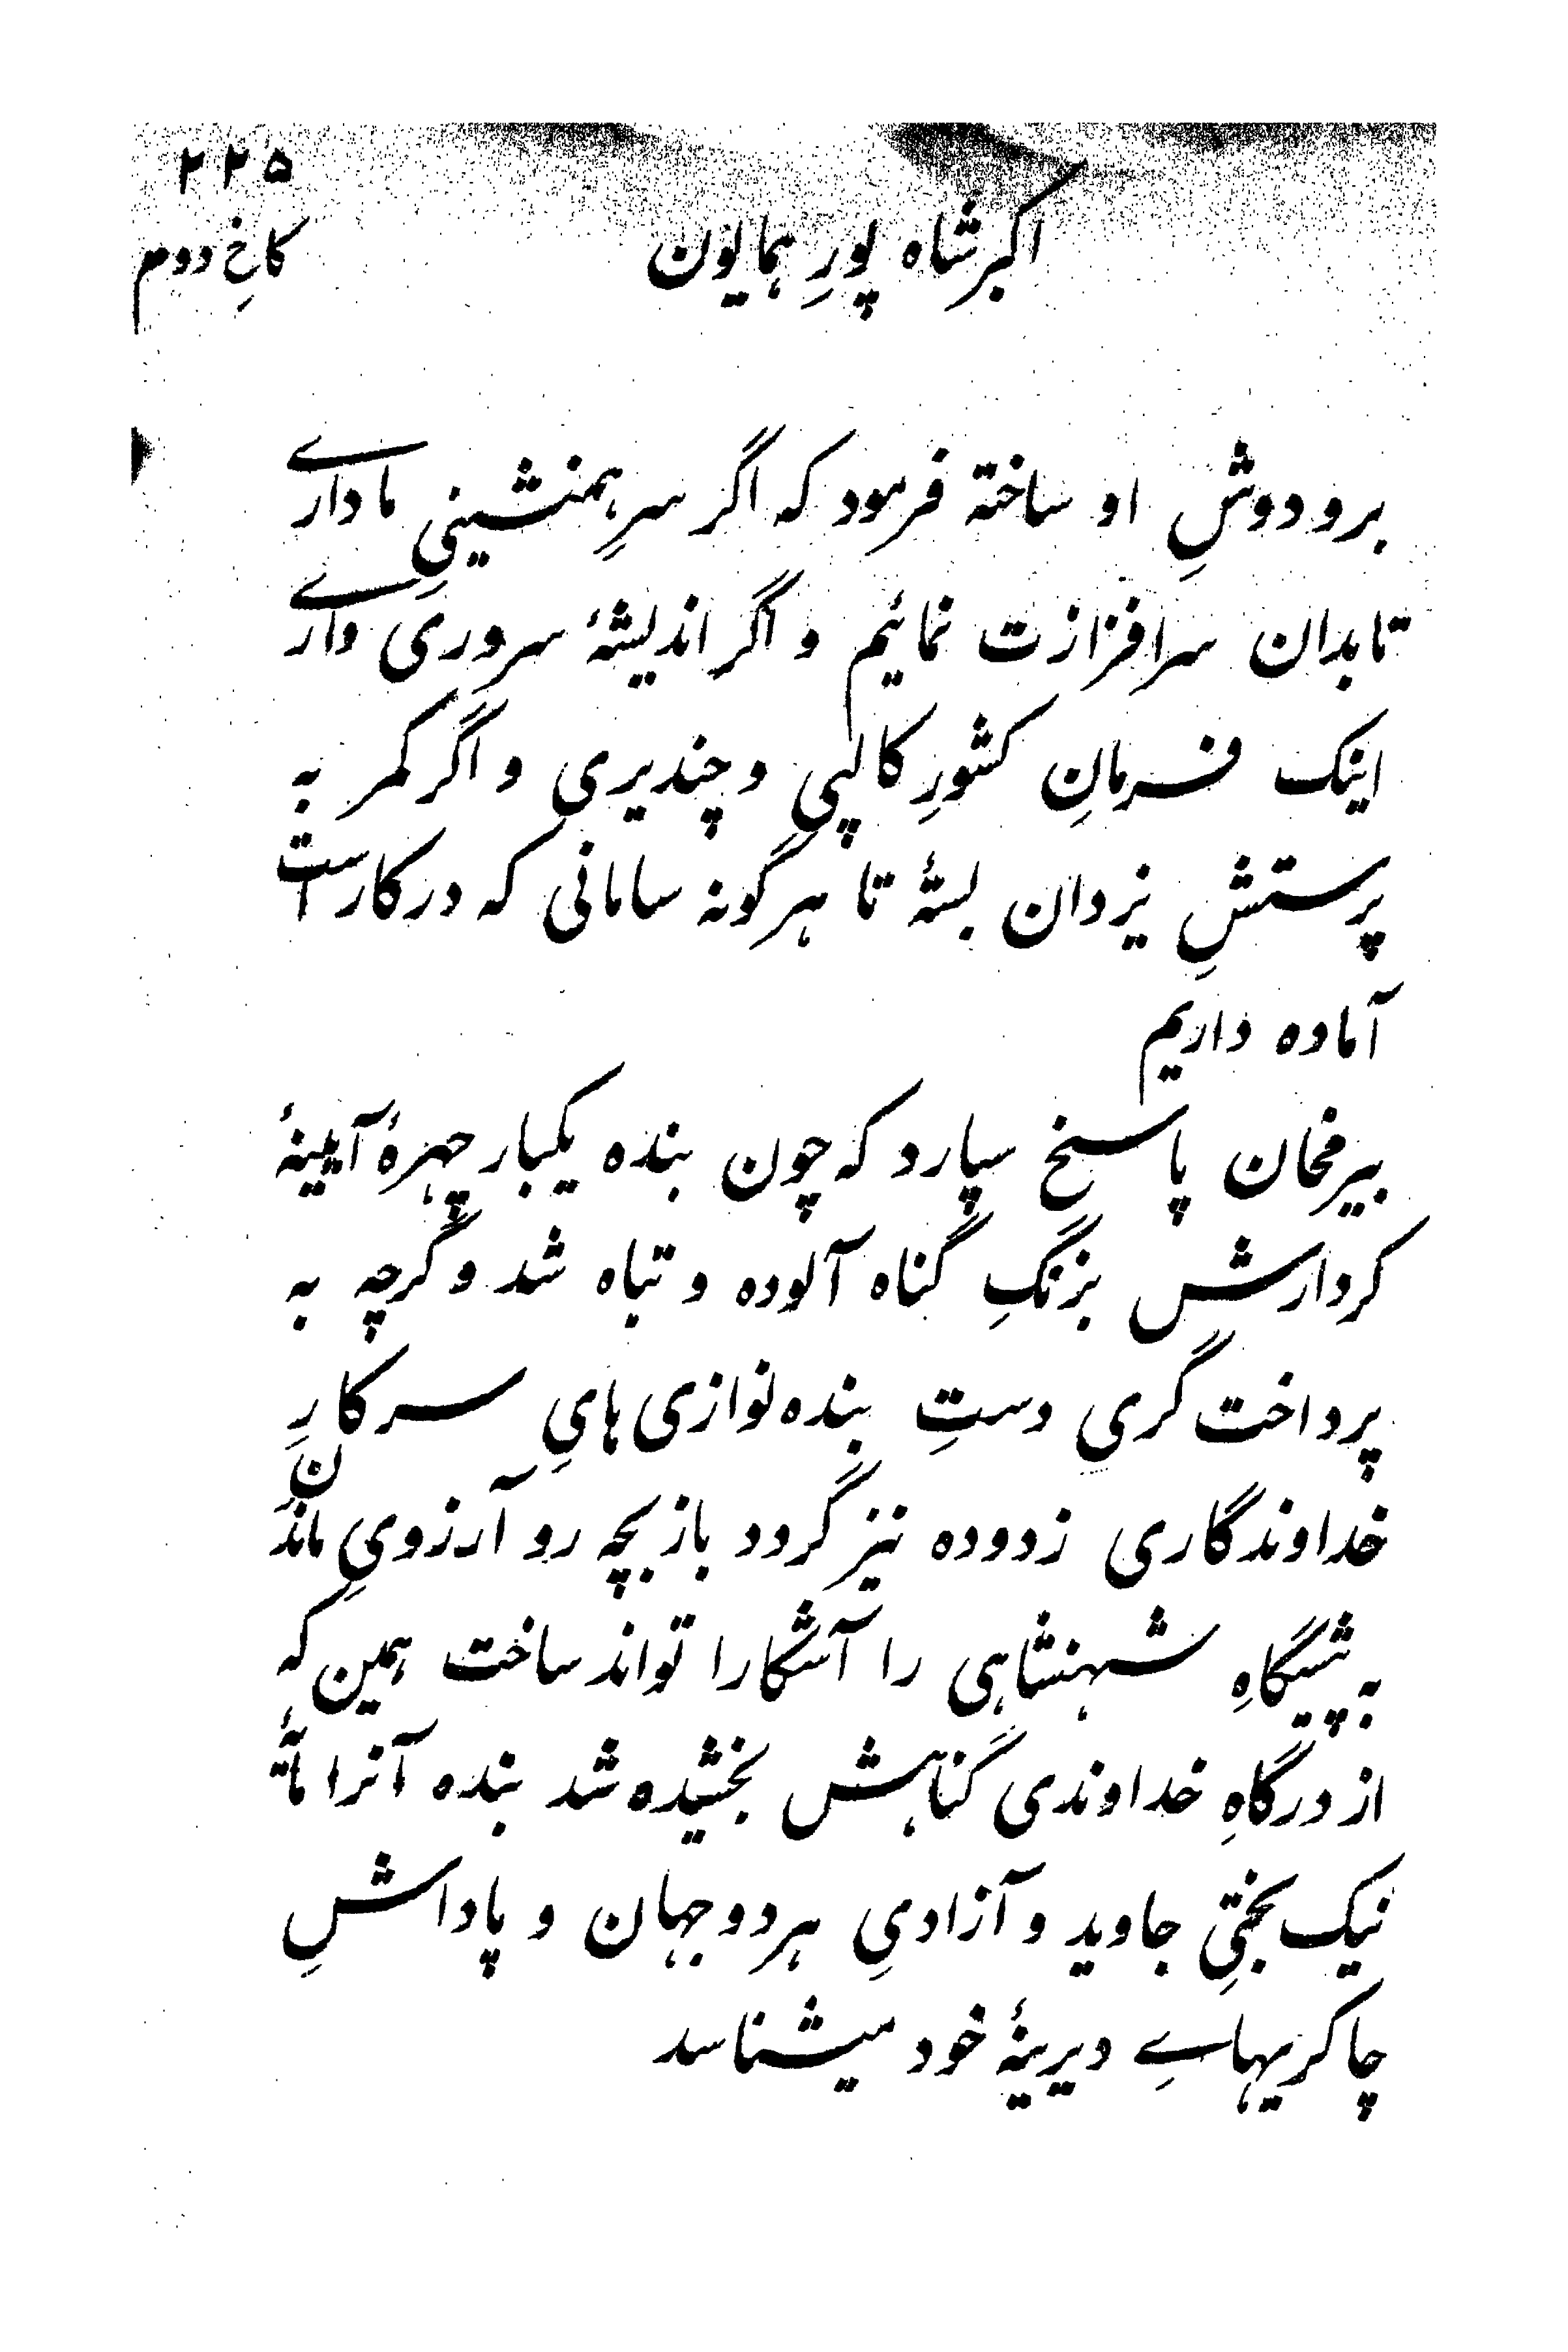 ۲۲۵
اکبرشاه پورِ همایون
کاخِ دوم
برودوشِ او ساخته فرمود که اگر سرِ همنشینیِ ما دارے
تابدان سرافرازت نمائیم و اگر اندیشۂ سروری دارے
اینک فرمانِ کشورِ کالپی و چندیری و اگر کمر به
پرستشِ یزدان بستۂ تا هرگونه سامانی که درکار است
آماده داریم
بیرمخان پاسخ سپارد که چون بنده یکبار چهرۂ آیینۂ
کردارش بزنگِ گناه آلوده و تباه شد و گرچه به
پرداخت گریِ دستِ بنده نوازی هایِ سرکارِ
خداوندگاری زدوده نیز گردد باز بچه رو آرزویِ ماندنِ
به پیشگاهِ شهنشاهی را آشکارا تواند ساخت همین که
از درگاهِ خداوندی گناهش بخشیده شد بنده آنرا مایۂ
نیک بختیِ جاوید و آزادیِ هر دو جهان و پاداشِ
چاکریهاےِ دیرینۂ خود میشناسد